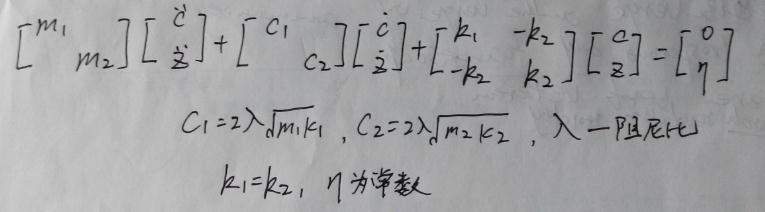 [m₁ m₂][c̈ z̈]+[c₁ c₂][ċ ż]+[k₁ -k₂ -k₂ k₂][c z]=[0 η]
C₁=2λ√m₁k₁ , C₂=2λ√m₂k₂ , λ—阻尼比
k₁=k₂, η为常数